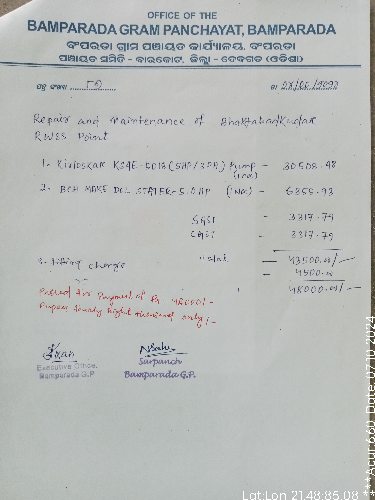 OFFICE OF THE
BAMPARADA GRAM PANCHAYAT, BAMPARADA
ବଂପରଡା ଗ୍ରାମ ପଞ୍ଚାୟତ କାର୍ଯ୍ୟାଳୟ, ବଂପରଡା
ପଞ୍ଚାୟତ ସମିତି - ବାରକୋଟ, ଜିଲ୍ଲା - ଦେବଗଡ (ଓଡ଼ିଶା)
ପତ୍ର ସଂଖ୍ୟା
ତା
Repair and Maintenance of
RWSS Point
1. Kirloskar (5HP/3PH) Pump - 30508.48
(1No.)
2. BCH MAKE DOL STATER-5.0HP (1No.) - 6355.93
SGST - 3317.79
CGST - 3317.79
Total - 43500.00/-
3. Fitting charge - 4500.00
48000.00/-
Passed for Payment of Rs 48000/-
Rupees fourty Eight thousand only/-
Executive Officer
Bamparada G.P
Sarpanch
Bamparada G.P.
Lat:Lon 21.48:85.08
***Acur:660, Date:07.10.2024